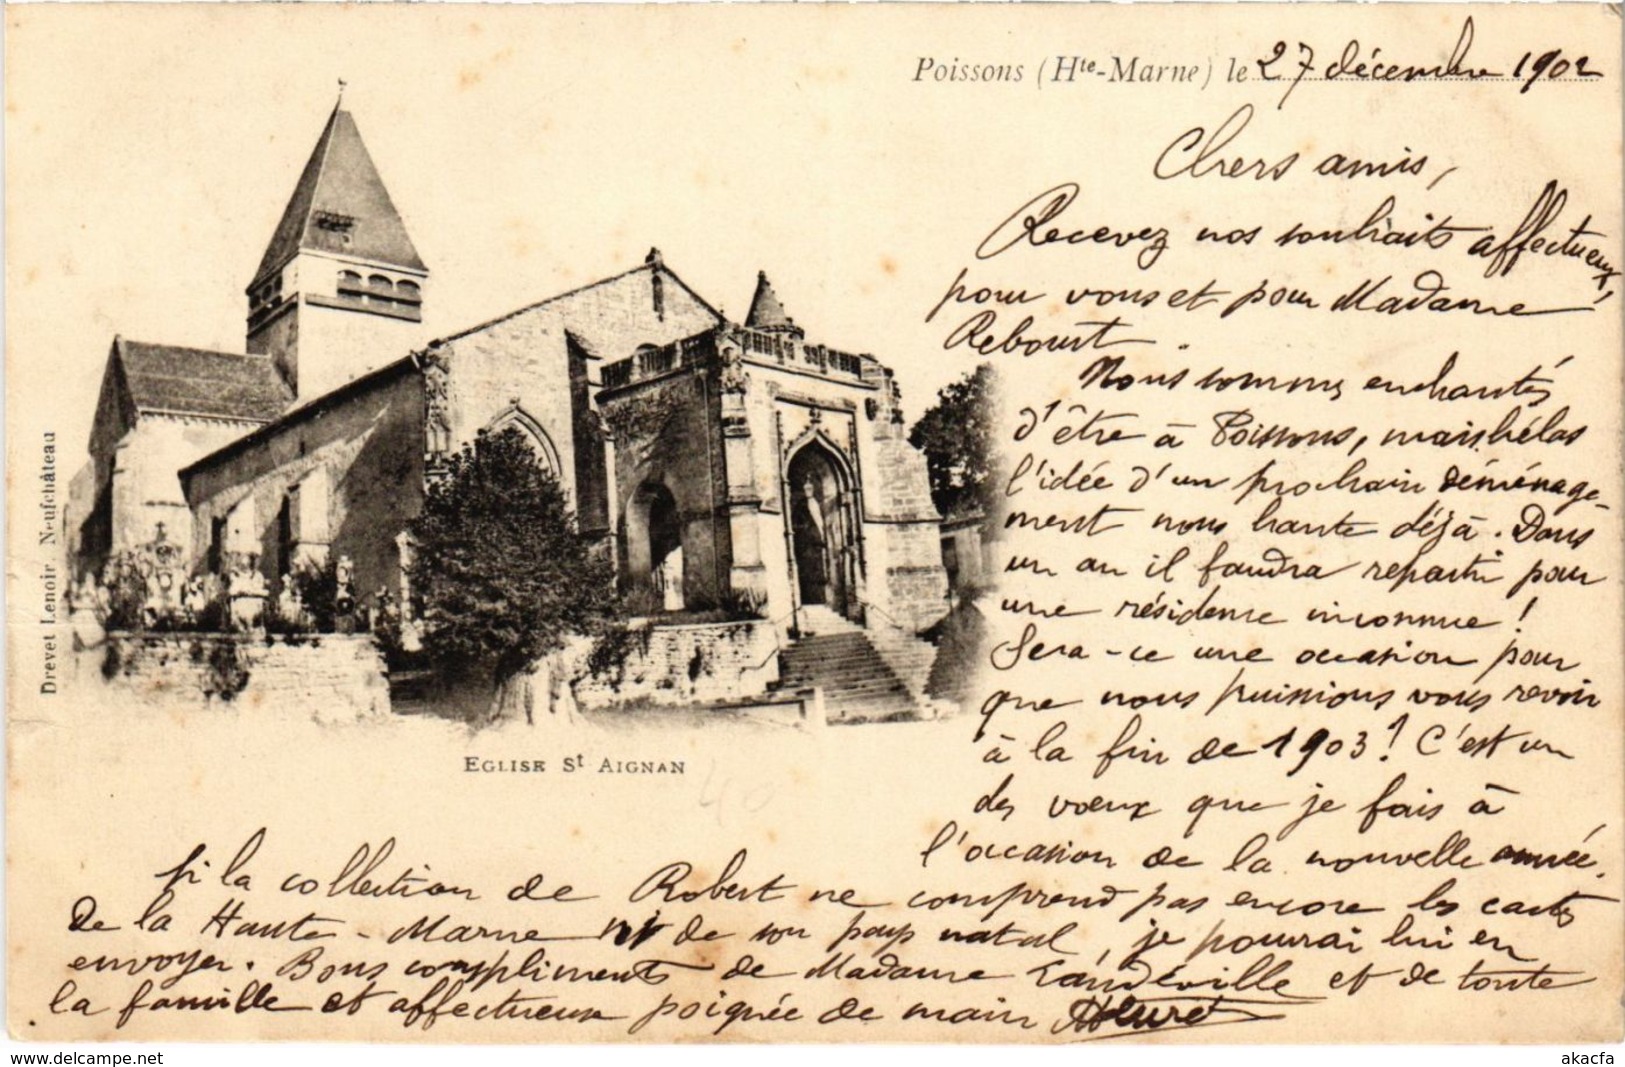 Poissons (Hte-Marne) le 27 décembre 1902
Chers amis,
Recevez nos souhaits affectueux,
pour vous et pour Madame
Reboust.
Nous sommes enchantés
d'être à Poissons, mais hélas
l'idée d'un prochain déménage-
ment nous hante déjà. Dans
un an il faudra repartir pour
une résidence inconnue !
Sera-ce une occasion pour
que nous puissions vous revoir
à la fin de 1903 ? C'est un
des vœux que je fais à
l'occasion de la nouvelle année.
Drevet Lenoir Neufchâteau
EGLISE St AIGNAN
40
Si la collection de Robert ne comprend pas encore les cartes
de la Haute-Marne ni de son pays natal, je pourrai lui en
envoyer. Bons compliments de Madame Landéville et de toute
la famille et affectueuse poignée de main
delcampe.net
akacfa